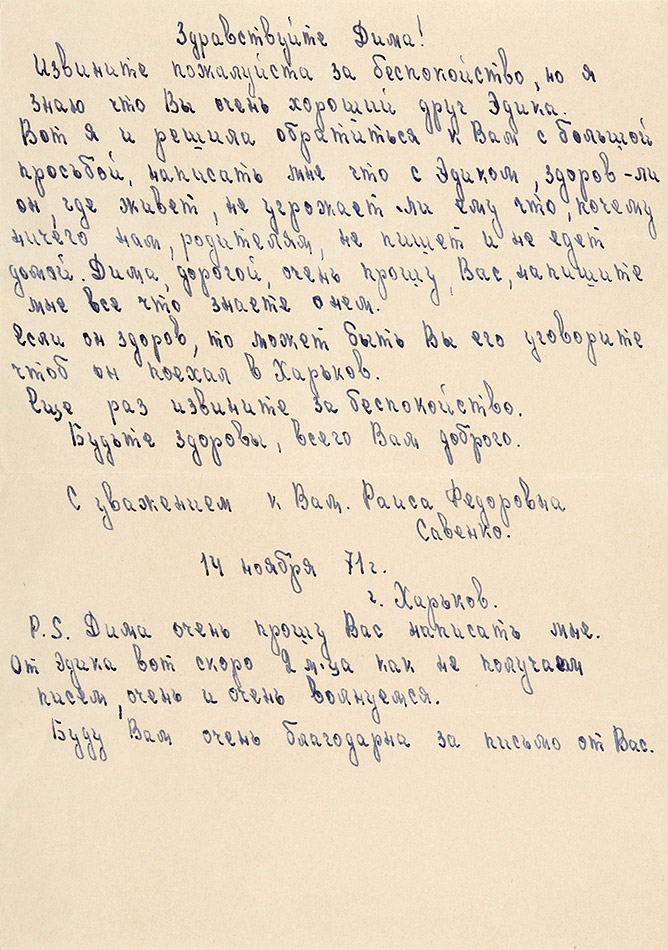 Здравствуйте Дима!
Извините пожалуйста за беспокойство, но я
знаю что Вы очень хороший друг Эдика.
Вот я и решила обратиться к Вам с большой
просьбой, написать мне что с Эдиком, здоров-ли
он, где живет, не угрожает ли ему что, почему
ничего нам, родителям, не пишет и не едет
домой. Дима, дорогой, очень прошу, Вас, напишите
мне все что знаете о нем.
Если он здоров, то может быть Вы его уговорите
чтоб он поехал в Харьков.
Еще раз извините за беспокойство.
Будьте здоровы, всего Вам доброго.
С уважением к Вам. Раиса Федоровна
Савенко.
14 ноября 71г.
г. Харьков.
P.S. Дима очень прошу Вас написать мне.
От Эдика вот скоро 2 м-ца как не получаем
писем, очень и очень волнуемся.
Буду Вам очень благодарна за письмо от Вас.